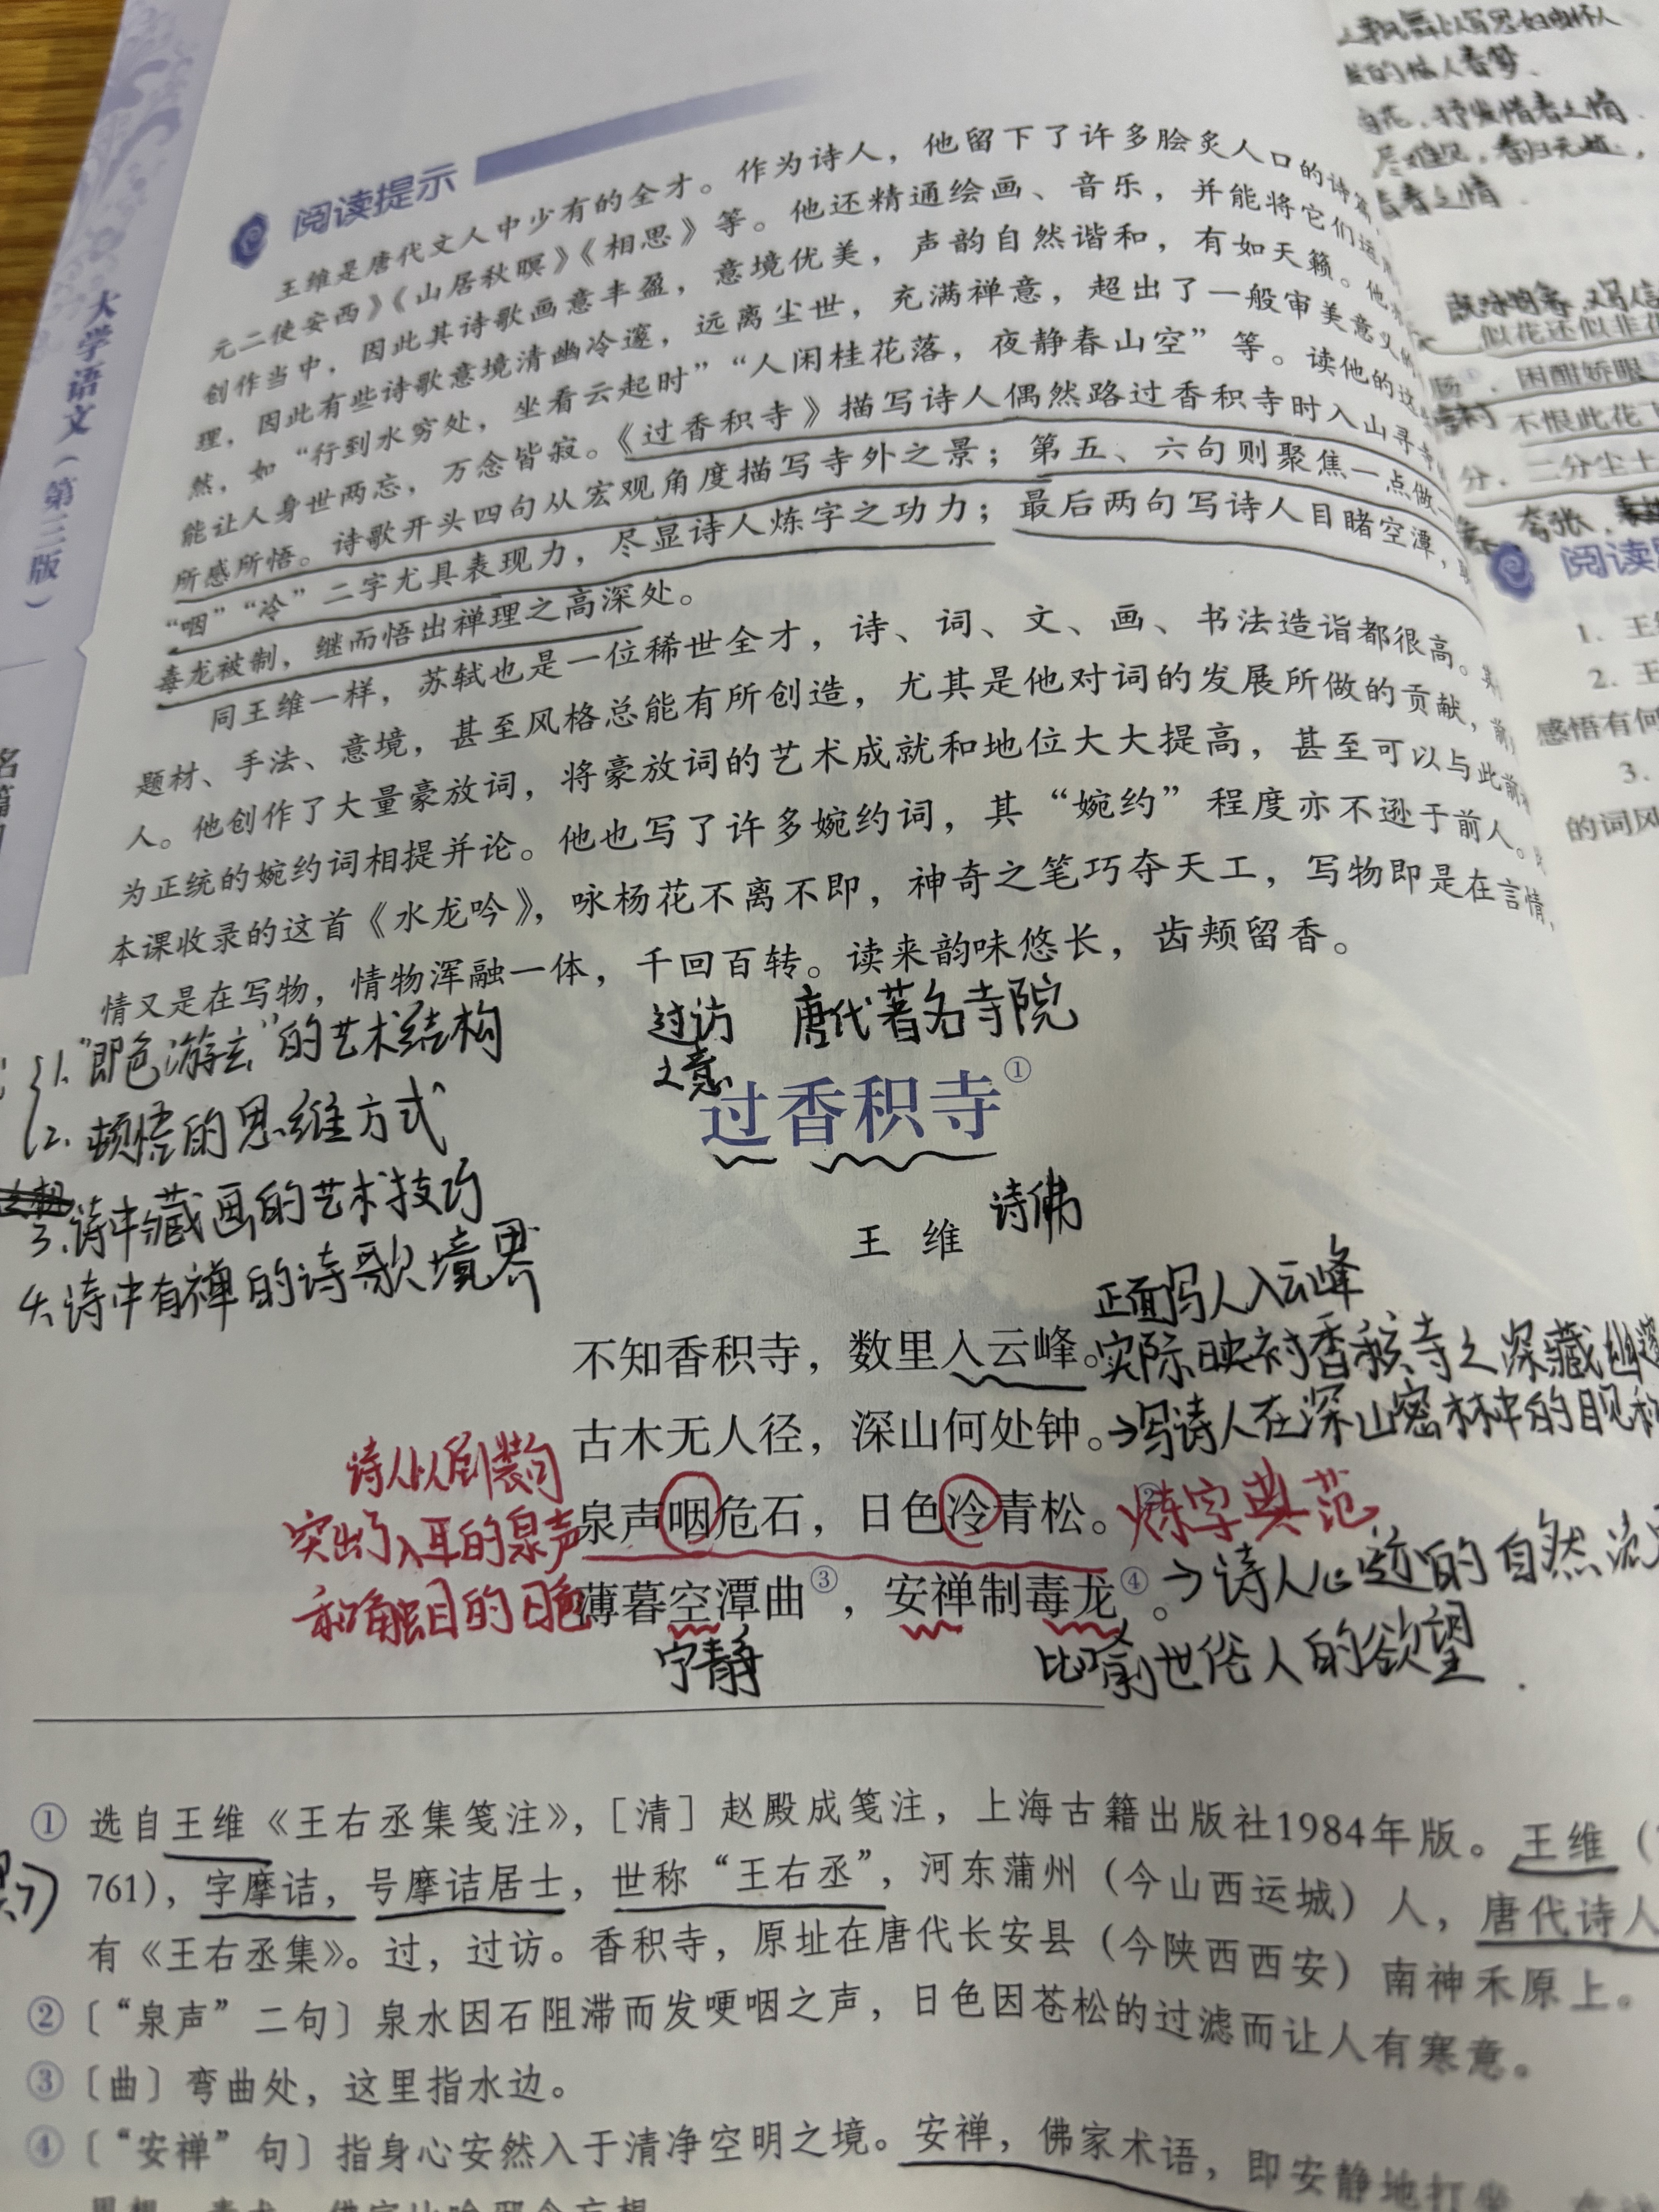 大学语文（第三版）
阅读提示
王维是唐代文人中少有的全才。作为诗人，他留下了许多脍炙人口的诗篇，
元二使安西》《山居秋暝》《相思》等。他还精通绘画、音乐，并能将它们运用
创作当中，因此其诗歌画意丰盈，意境优美，声韵自然谐和，有如天籁。他
理，因此有些诗歌意境清幽冷邃，远离尘世，充满禅意，超出了一般审美意义的
然，如“行到水穷处，坐看云起时”“人闲桂花落，夜静春山空”等。读他的这
能让人身世两忘，万念皆寂。《过香积寺》描写诗人偶然路过香积寺时入山寻寺
所感所悟。诗歌开头四句从宏观角度描写寺外之景；第五、六句则聚焦一点做
“咽”“冷”二字尤具表现力，尽显诗人炼字之功力；最后两句写诗人目睹空潭，
毒龙被制，继而悟出禅理之高深处。
同王维一样，苏轼也是一位稀世全才，诗、词、文、画、书法造诣都很高。
题材、手法、意境，甚至风格总能有所创造，尤其是他对词的发展所做的贡献，前
人。他创作了大量豪放词，将豪放词的艺术成就和地位大大提高，甚至可以与此前
为正统的婉约词相提并论。他也写了许多婉约词，其“婉约”程度亦不逊于前人。
本课收录的这首《水龙吟》，咏杨花不离不即，神奇之笔巧夺天工，写物即是在言情，
情又是在写物，情物浑融一体，千回百转。读来韵味悠长，齿颊留香。
1.“即色游玄”的艺术结构
2.顿悟的思维方式
3.诗中藏画的艺术技巧
4.诗中有禅的诗歌境界
过访
之意
唐代著名寺院
过香积寺①
王 维
诗佛
正面写人入云峰
不知香积寺，数里入云峰。
实际映衬香积寺之深藏幽邃
古木无人径，深山何处钟。
→写诗人在深山密林中的目见
诗人以倒装句
突出了入耳的泉声
和触目的日色
泉声咽危石，日色冷青松。②
炼字典范
薄暮空潭曲③，安禅制毒龙④。
→诗人心迹的自然流
宁静
比喻世俗人的欲望
① 选自王维《王右丞集笺注》，［清］赵殿成笺注，上海古籍出版社1984年版。王维（
761），字摩诘，号摩诘居士，世称“王右丞”，河东蒲州（今山西运城）人，唐代诗人
有《王右丞集》。过，过访。香积寺，原址在唐代长安县（今陕西西安）南神禾原上。
② 〔“泉声”二句〕泉水因石阻滞而发哽咽之声，日色因苍松的过滤而让人有寒意。
③ 〔曲〕弯曲处，这里指水边。
④ 〔“安禅”句〕指身心安然入于清净空明之境。安禅，佛家术语，即安静地打
似花还似非花
困酣娇眼
不恨此花
分，二分尘土
夸张
阅读
1. 王
2. 王
感悟有何
3.
的词风